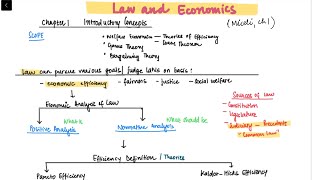 Law and Economics
Chapter 1 Introductory Concepts (Miceli, ch 1)
SCOPE
• Welfare Economics → Theories of Efficiency
• Game Theory • Coase Theorem
• Bargaining Theory
Law can pursue various goals/judge laws on basis:
- economic efficiency - fairness - justice - social welfare
Economic Analysis of Law
Sources of Law
- Constitution
- Legislature
- Judiciary - Precedents
"Common law"
What is
What should be
Positive Analysis
Normative Analysis
Efficiency Definition / Theories
Pareto Efficiency
Kaldor-Hicks Efficiency